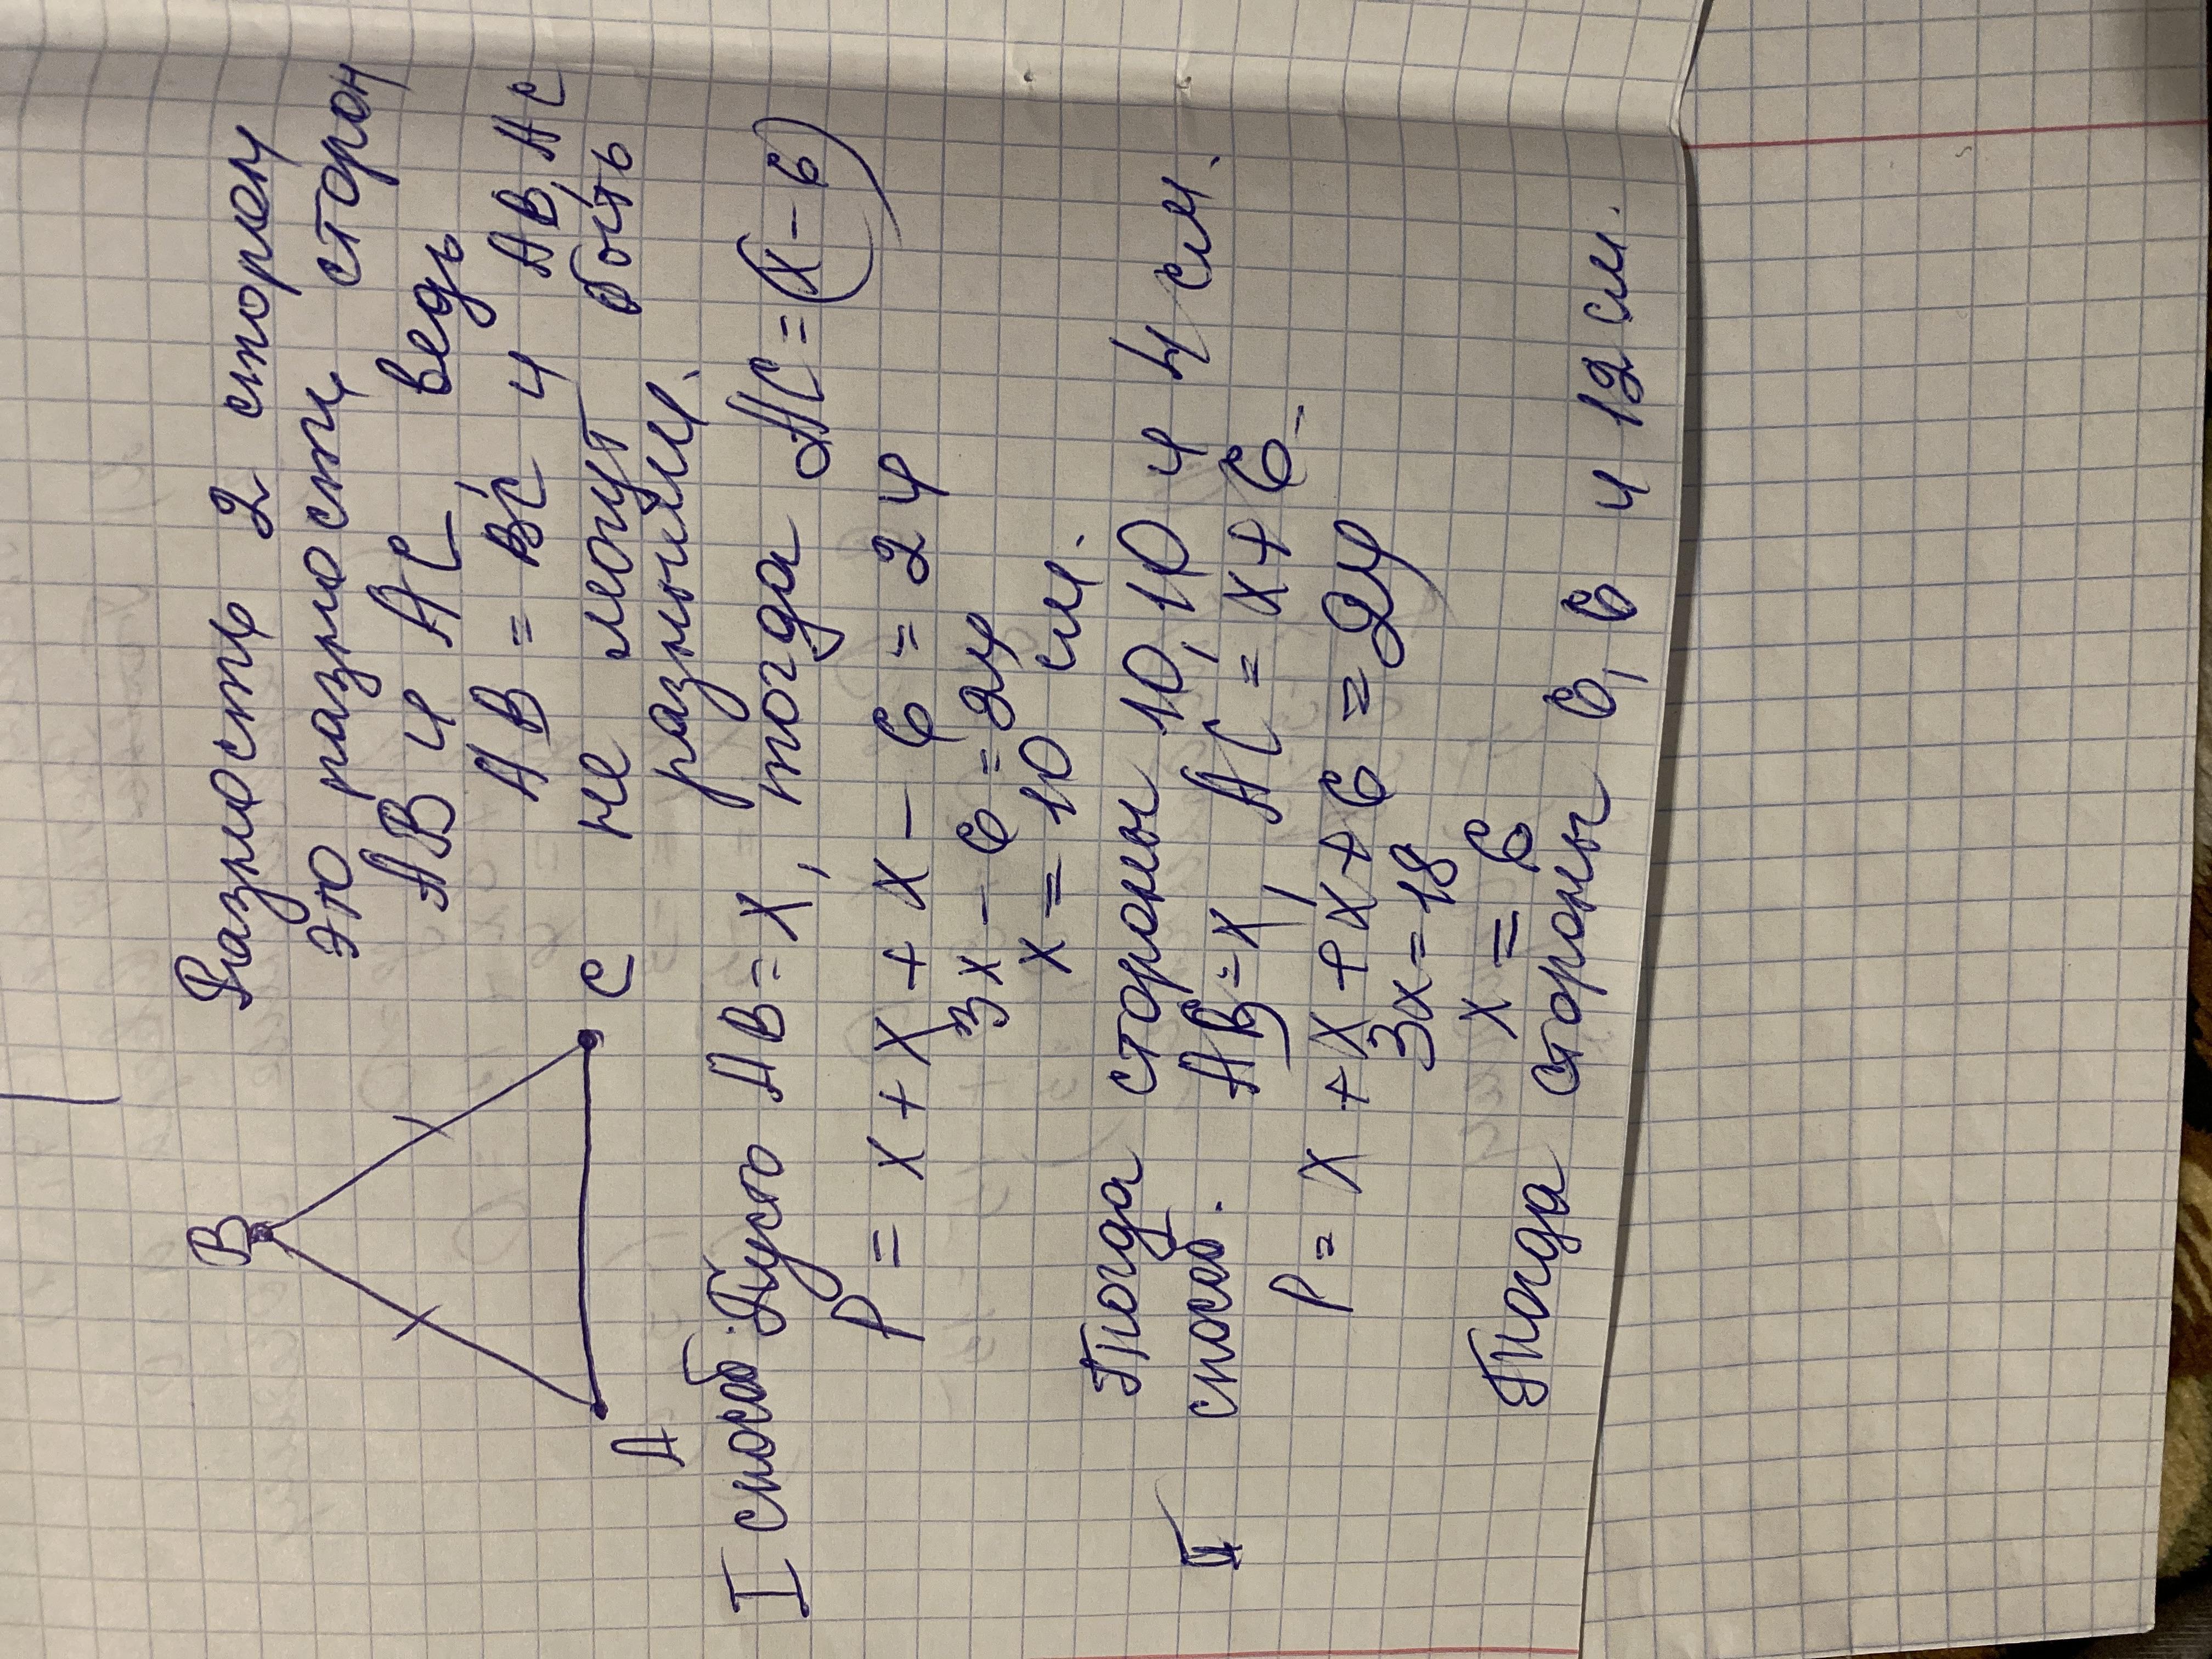 Разность 2 сторон
это разность сторон
AB и AC ведь
AB = BC и AB, AC
не могут быть
разными.
B
A
C
I способ. Пусть AB = x, тогда AC = (x-6)
P = x + x + x - 6 = 24
3x - 6 = 24
x = 10 см.
Тогда стороны 10, 10 и 4 см.
II способ. AB = x, AC = x + 6
P = x + x + x + 6 = 24
3x = 18
x = 6
Тогда стороны 6, 6 и 12 см.